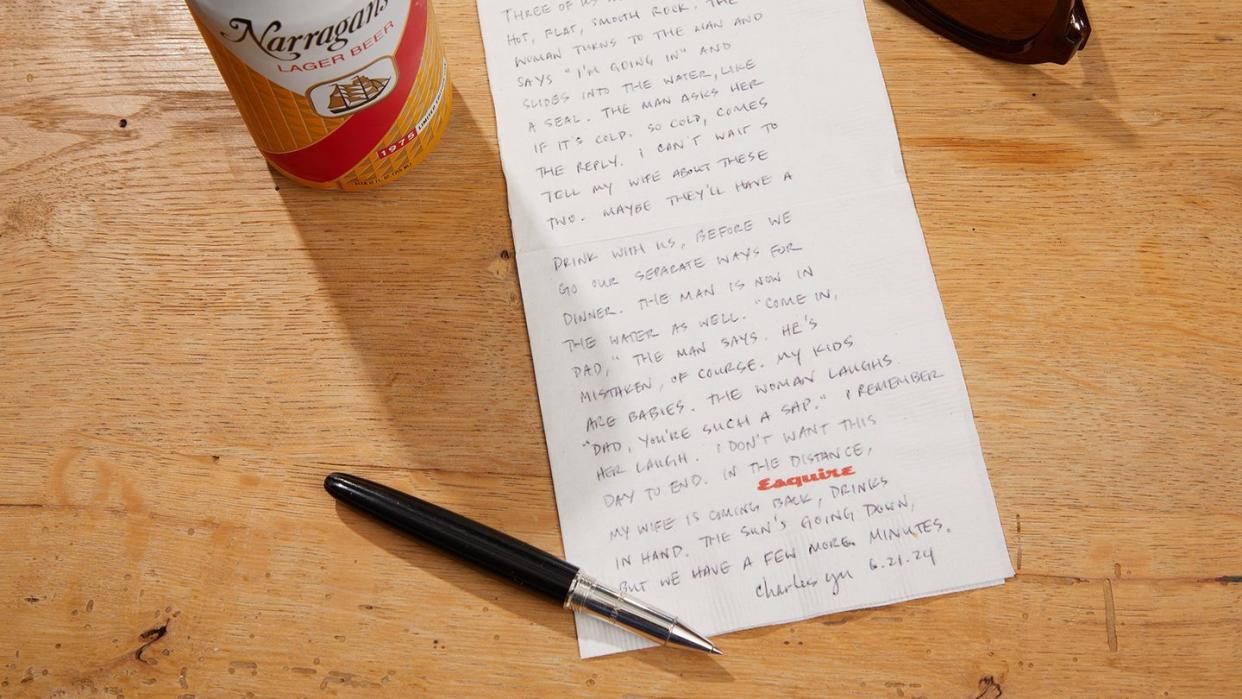 Narragans
LAGER BEER
1975 LIMITED
THREE OF US
HOT, FLAT, SMOOTH ROCK. THE
WOMAN TURNS TO THE MAN AND
SAYS "I'M GOING IN" AND
SLIDES INTO THE WATER, LIKE
A SEAL. THE MAN ASKS HER
IF IT'S COLD. SO COLD, COMES
THE REPLY. I CAN'T WAIT TO
TELL MY WIFE ABOUT THESE
TWO. MAYBE THEY'LL HAVE A
DRINK WITH US, BEFORE WE
GO OUR SEPARATE WAYS FOR
DINNER. THE MAN IS NOW IN
THE WATER AS WELL. "COME IN,
DAD," THE MAN SAYS. HE'S
MISTAKEN, OF COURSE. MY KIDS
ARE BABIES. THE WOMAN LAUGHS.
"DAD, YOU'RE SUCH A SAP." I REMEMBER
HER LAUGH. I DON'T WANT THIS
DAY TO END. IN THE DISTANCE,
Esquire
MY WIFE IS COMING BACK, DRINKS
IN HAND. THE SUN'S GOING DOWN,
BUT WE HAVE A FEW MORE MINUTES.
Charles Yu 6.21.24